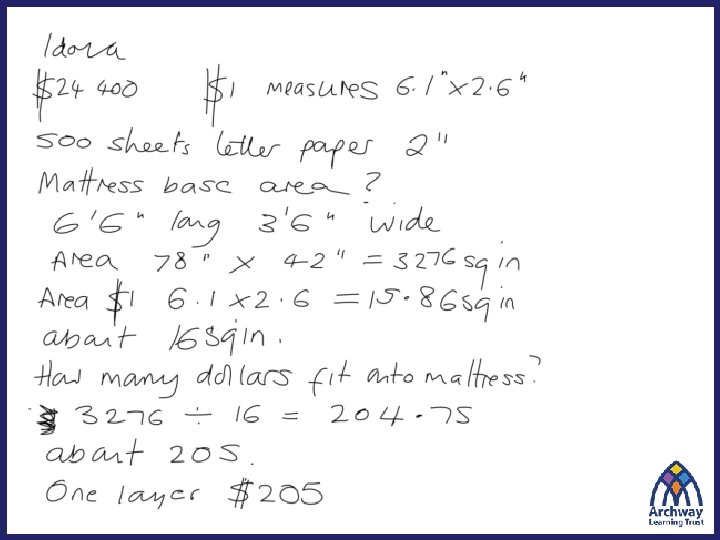 Idora
$24 400 $1 measures 6.1" x 2.6"
500 sheets letter paper 2"
Mattress base area ?
6'6" long 3'6" wide
Area 78" x 42" = 3276 sq in
Area $1 6.1 x 2.6 = 15.86 sq in
about 16 sq in.
How many dollars fit onto mattress?
3276 ÷ 16 = 204.75
about 205.
One layer $205
Archway
Learning Trust